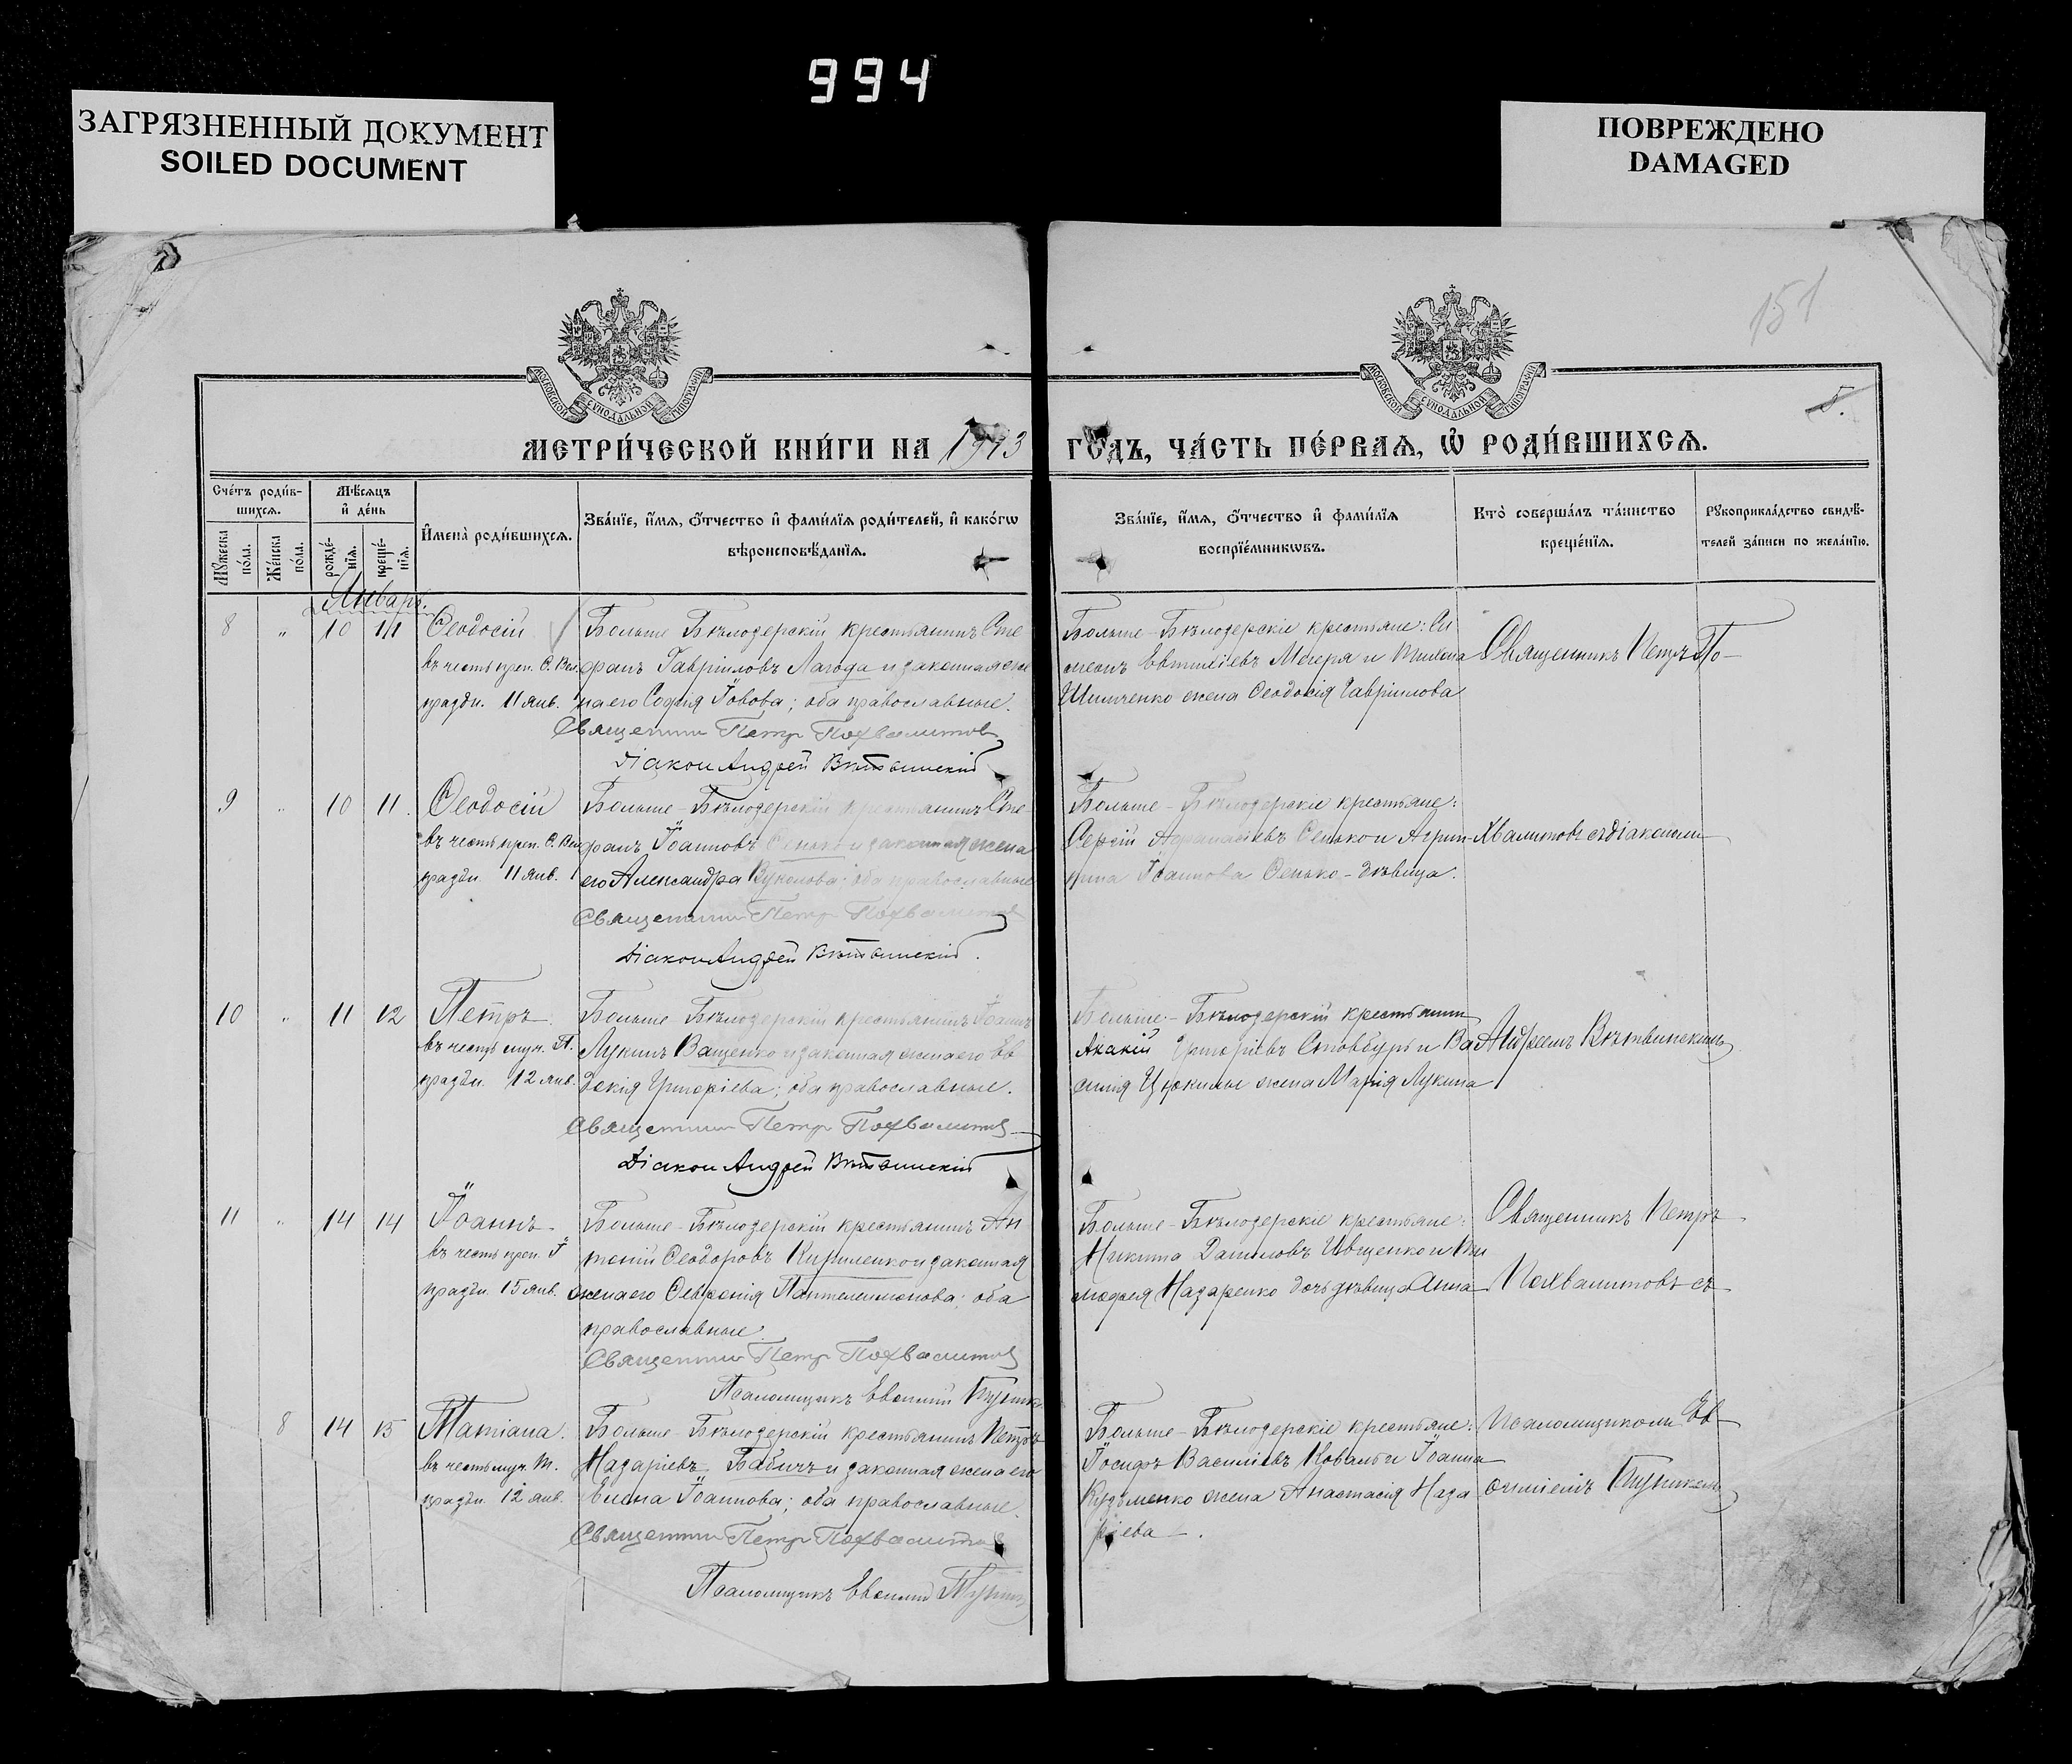 994
ЗАГРЯЗНЕННЫЙ ДОКУМЕНТ
SOILED DOCUMENT
ПОВРЕЖДЕНО
DAMAGED
151
5.
МОСКОВСКОЙ СУНОДАЛЬНОЙ ТИПОГРАФІИ
МОСКОВСКОЙ СУНОДАЛЬНОЙ ТИПОГРАФІИ
МЕТРИ́ЧЕСКОЙ КНИ́ГИ НА 1913 ГО́ДЪ, ЧА́СТЬ ПЕ́РВАѦ, Ѡ҆ РОДИ́ВШИХСѦ.
Сче́тъ роди́в-
шихсѧ.
Мꙋ́жеска по́ла.
Же́нска по́ла.
Мѣ́сѧцъ
и҆ де́нь
рожде́-
нїѧ.
креще́-
нїѧ.
И҆мена̀ роди́вшихсѧ.
Зва́нїе, и҆́мѧ, ѻ҆́тчество и҆ фами́лїѧ роди́телей, и҆ како́гѡ
вѣроисповѣ́данїѧ.
Зва́нїе, и҆́мѧ, ѻ҆́тчество и҆ фами́лїѧ
воспрїе́мникѡвъ.
Кто̀ соверша́лъ та́инство
креще́нїѧ.
Рꙋкоприкла́дство свидѣ́-
телей за́писи по жела́нїю.
Январь.
8 " 10 11
Ѳеодосій
въ честь преп. Ѳ. Вел.
праздн. 11 янв.
Больше Бѣлозерскій крестьянинъ Сте
фанъ Гавріиловъ Лагода и законная же
на его Софія Іовова; оба православные.
Священник Петр Похвалитов
Діакон Андрей Вѣтвинскій
Больше-Бѣлозерскіе крестьяне: Си
меонъ Евтихіевъ Мегеря и
жена Ѳеодосія Гавріилова
Священникъ Петръ По-
9 " 10 11.
Ѳеодосій
въ честь преп. Ѳ. Вел.
праздн. 11 янв.
Больше-Бѣлозерскій крестьянинъ Сте
фанъ Іоанновъ Сенько и законная жена
его Александра Вуколова; оба православные
Священник Петр Похвалитов
Діакон Андрей Вѣтвинскій.
Больше-Бѣлозерскіе крестьяне:
Сергій Аѳанасіевъ Сенько и Агрип-
пина Іоаннова Сенько-дѣвица.
хвалитовъ съ діакономъ
10 " 11 12
Петръ
въ честь муч. П.
праздн. 12 янв.
Больше-Бѣлозерскій крестьянинъ Іоаннъ
Лукинъ Ващенко и законная жена его Ев
докія Григорьева; оба православные.
Священник Петр Похвалитов
Діакон Андрей Вѣтвинскій
Больше-Бѣлозерскій крестьянин
Акакій Григоріевъ Стовбуръ и Ва
силія жена Марія Лукина
Андреемъ Вѣтвинскимъ
11 " 14 14
Іоаннъ
въ честь преп. І
праздн. 15 янв.
Больше-Бѣлозерскій крестьянинъ Ан
тоній Ѳеодоровъ Кириленко и законная
жена его Февронія Пантелеимонова; оба
православные.
Священник Петр Похвалитов
Псаломщикъ Евѳимій
Больше-Бѣлозерскіе крестьяне:
Никита Даниловъ Ищенко и Ти
моѳея Назаренко дочь дѣвица Анна
Священникъ Петръ
Похвалитовъ съ
8 14 15
Татіана.
въ честь муч. Т.
праздн. 12 янв.
Больше-Бѣлозерскій крестьянинъ Петръ
Назаріевъ Бабичъ и законная жена его
Елена Іоаннова; оба православные.
Священник Петр Похвалитов
Псаломщикъ Евѳимій
Больше-Бѣлозерскіе крестьяне:
Іосифъ Василіевъ Коваль и Іоанна
Кузьменко жена Анастасія Наза
ріева.
псаломщикомъ Ев-
ѳиміемъ